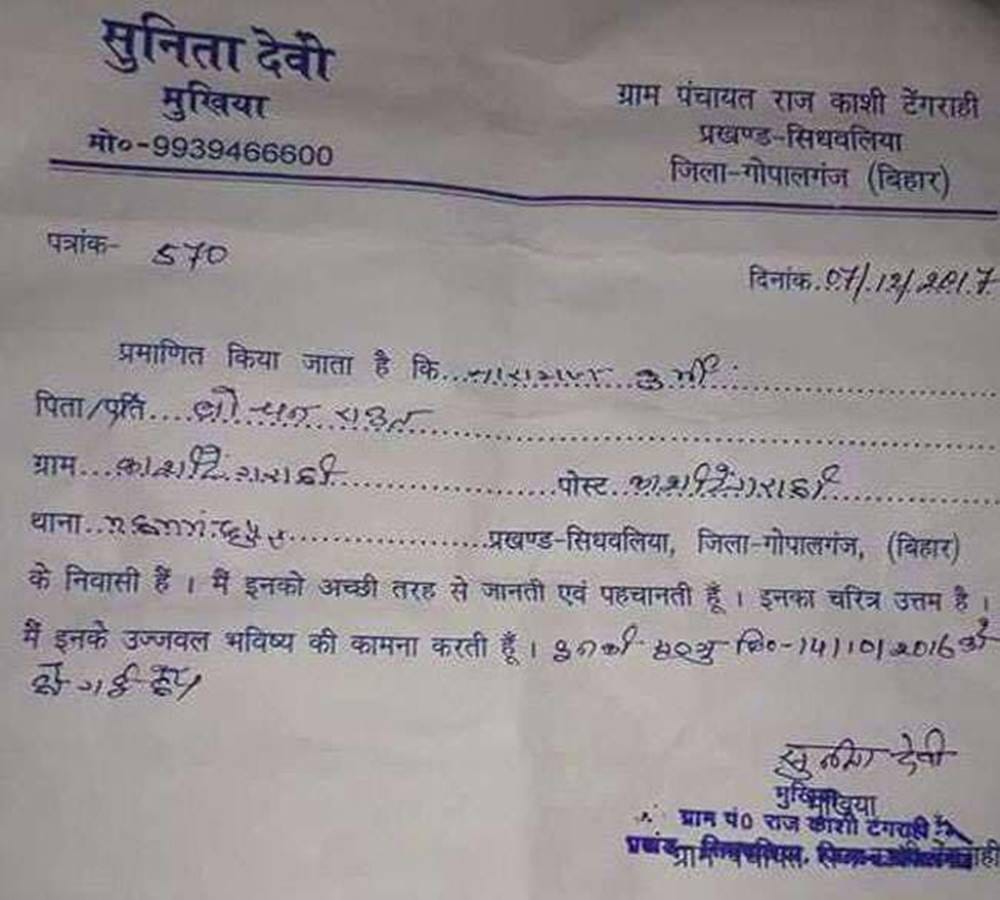 सुनिता देवी
मुखिया
मो०-9939466600
ग्राम पंचायत राज काशी टेंगराही
प्रखण्ड-सिधवलिया
जिला-गोपालगंज (बिहार)
पत्रांक- 570
दिनांक.07/12/2017
प्रमाणित किया जाता है कि...
पिता/पति....
ग्राम...काशी टेंगराही...पोस्ट..काशी टेंगराही
थाना.....प्रखण्ड-सिधवलिया, जिला-गोपालगंज, (बिहार)
के निवासी हैं । मैं इनको अच्छी तरह से जानती एवं पहचानती हूँ । इनका चरित्र उत्तम है ।
मैं इनके उज्जवल भविष्य की कामना करती हूँ । इनकी मृत्यु दि०-14/10/2016 को
हो गई है।
सुनीता देवी
मुखिया
ग्राम पं0 राज काशी टेंगराही